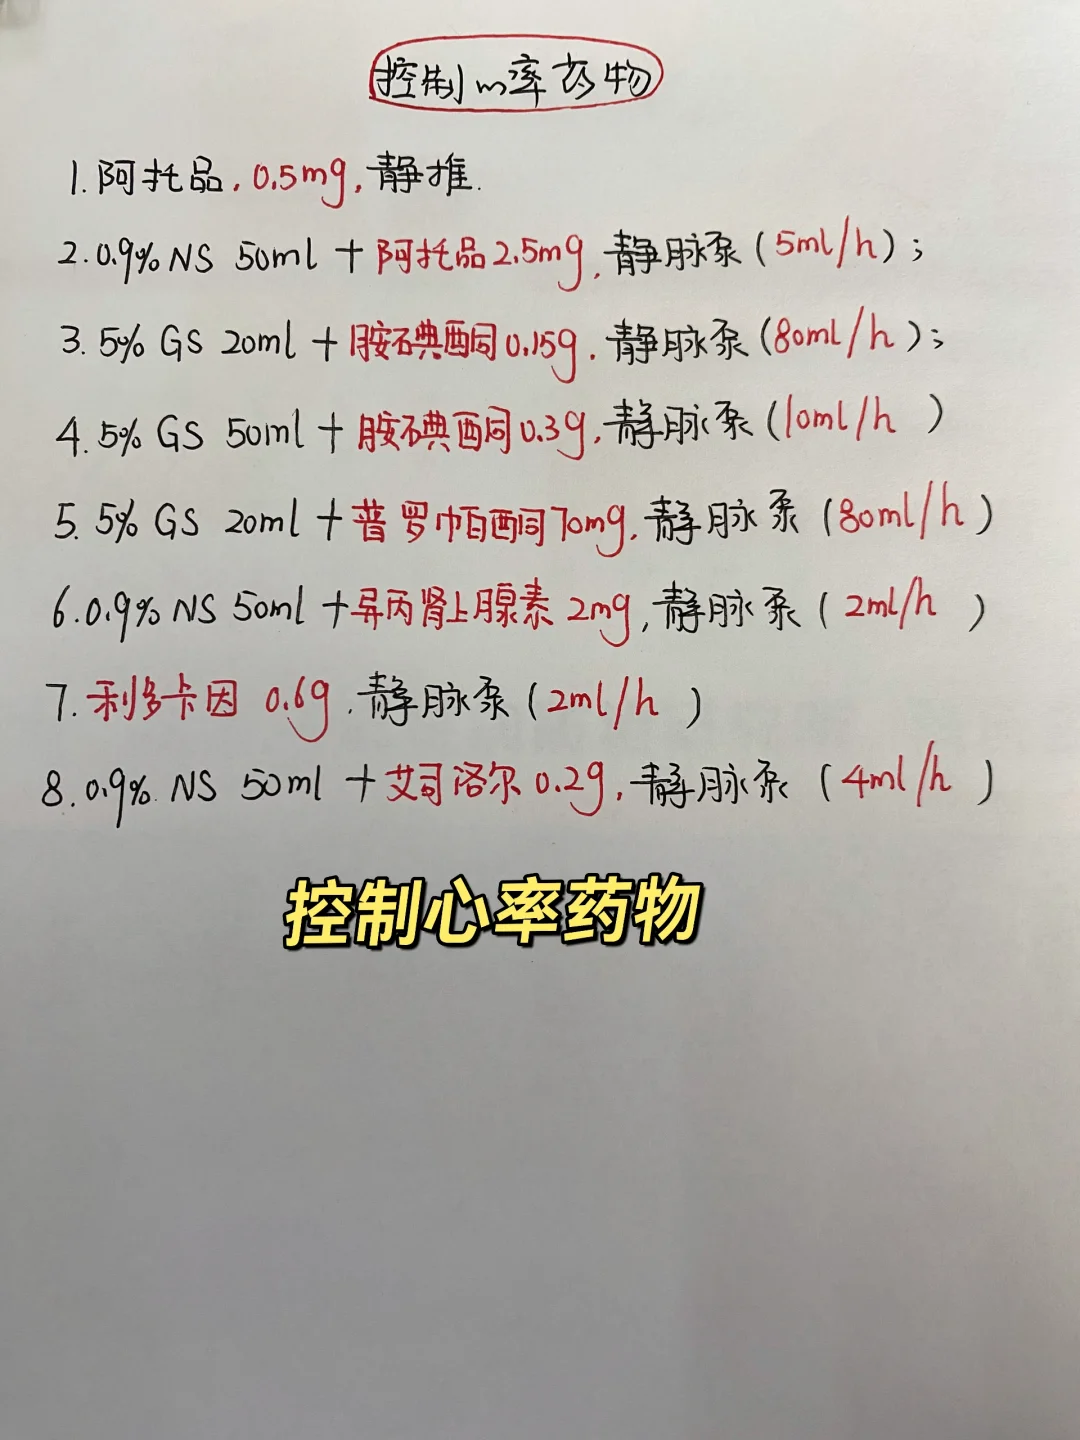 控制心率药物
1.阿托品,0.5mg,静推.
2.0.9%NS 50ml+阿托品2.5mg,静脉泵(5ml/h);
3.5% GS 20ml+胺碘酮0.15g,静脉泵(80ml/h);
4.5% GS 50ml+胺碘酮0.3g,静脉泵(10ml/h)
5.5% GS 20ml+普罗帕酮70mg,静脉泵(80ml/h)
6.0.9%NS 50ml+异丙肾上腺素 2mg,静脉泵(2ml/h)
7.利多卡因 0.6g.静脉泵(2ml/h)
8.0.9%.NS 50ml+艾司洛尔0.2g,静脉泵(4ml/h)
控制心率药物